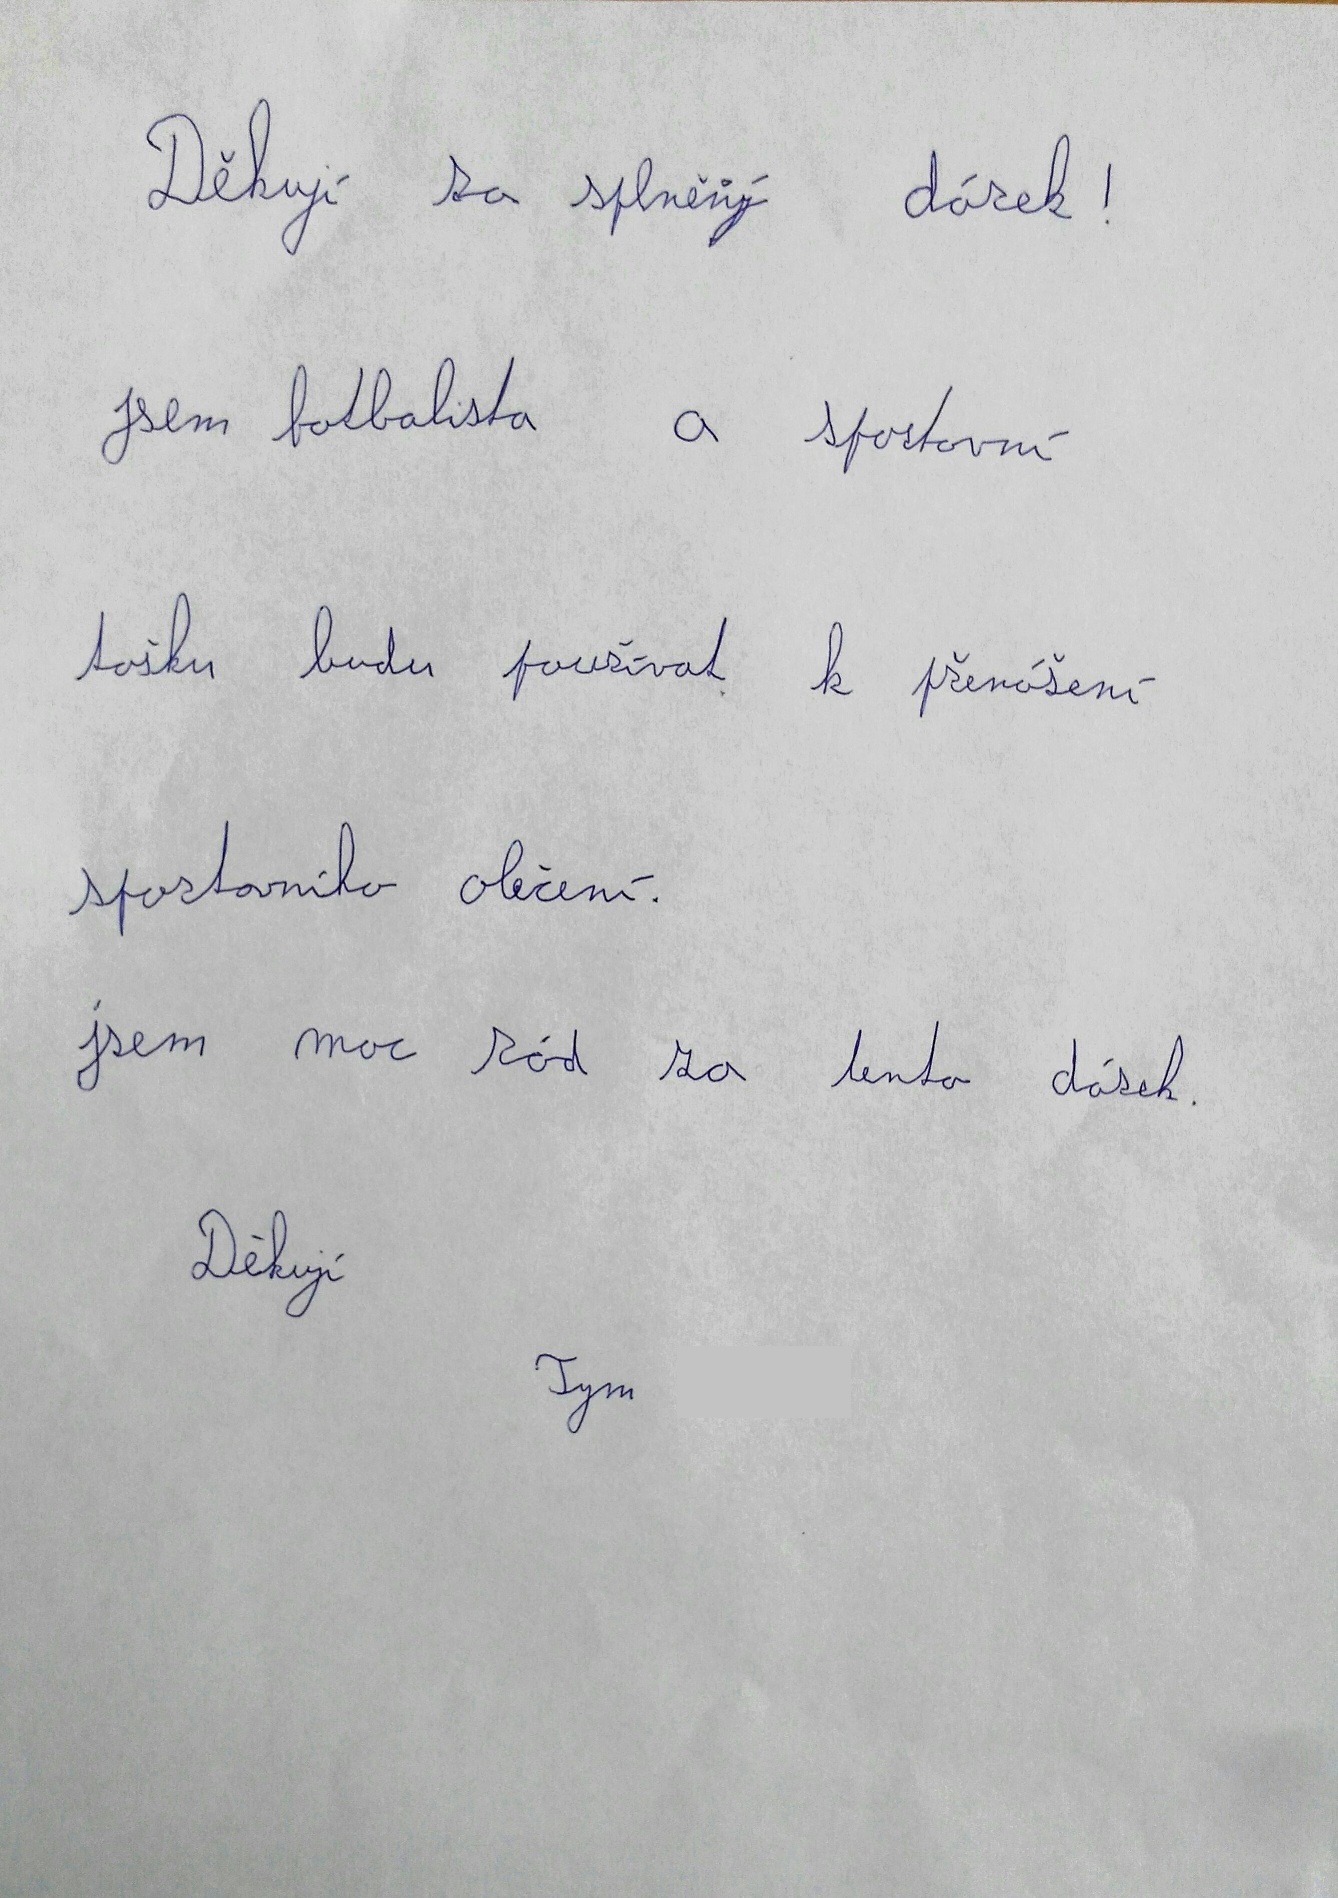 Děkuji za splněný dárek!
jsem fotbalista a sportovní
tašku budu používat k přenášení
sportovního oblečení.
jsem moc rád za tento dárek.
Děkuji
Tym